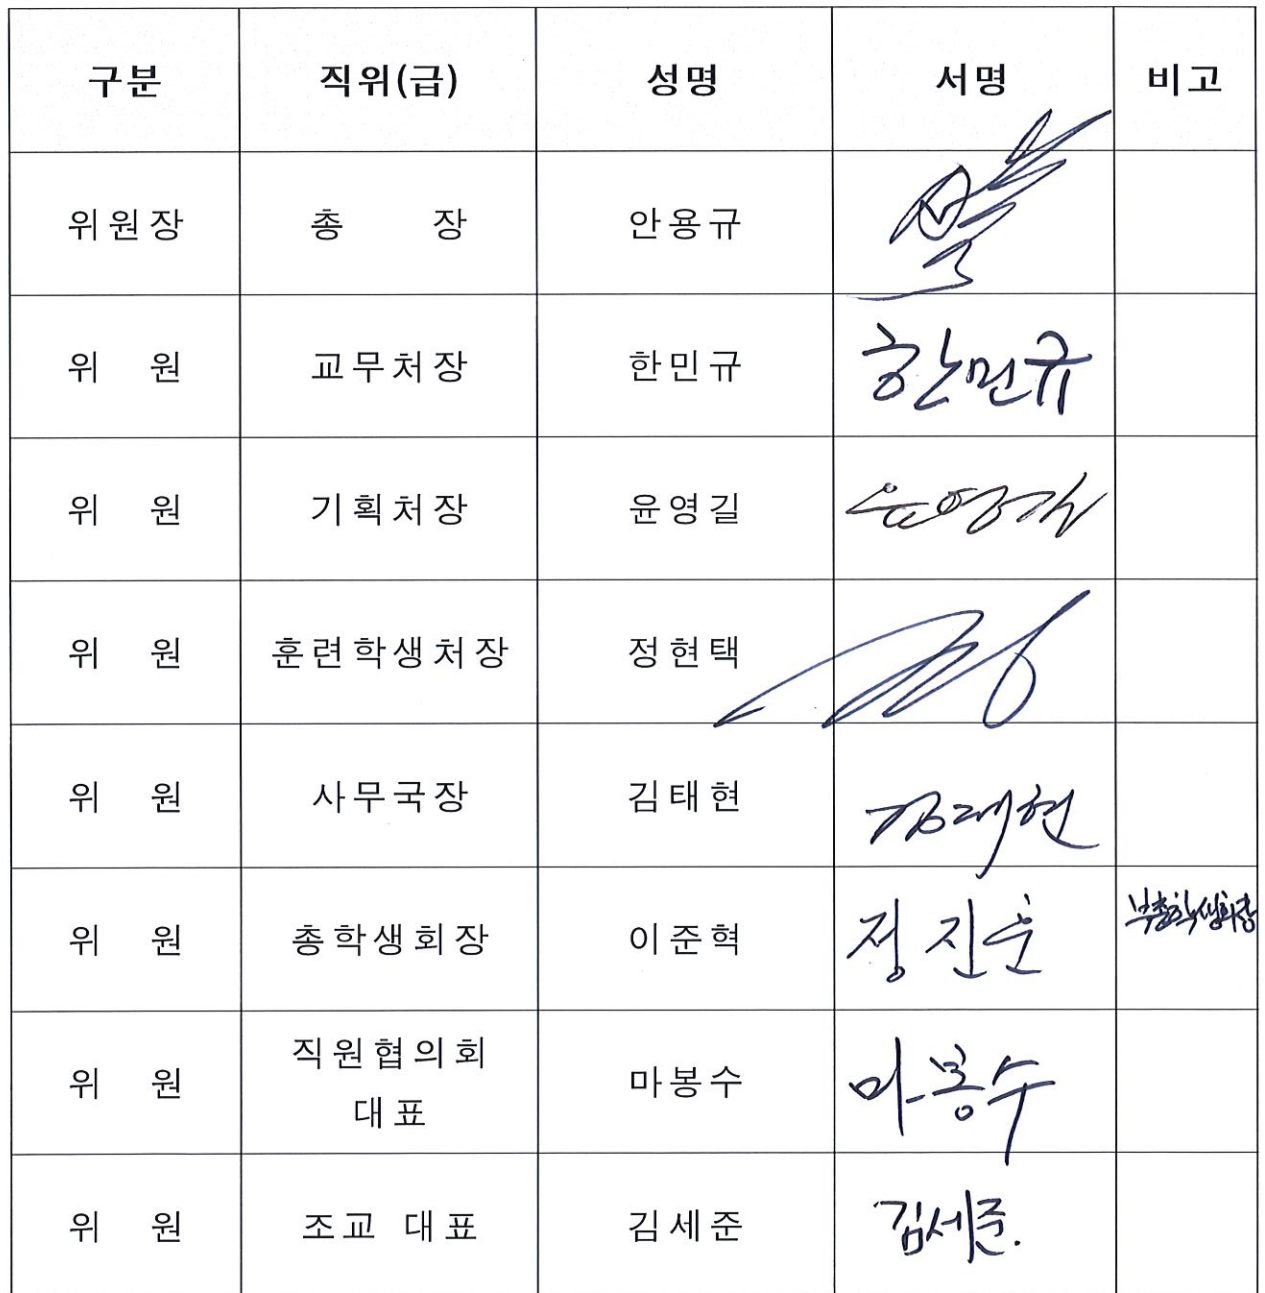 구분 직위(급) 성명 서명 비고
위원장 총 장 안용규
위 원 교무처장 한민규 한민규
위 원 기획처장 윤영길 윤영길
위 원 훈련학생처장 정현택
위 원 사무국장 김태현 김태현
위 원 총학생회장 이준혁 정진운 부총학생회장
위 원 직원협의회 마봉수 마봉수
대표
위 원 조교 대표 김세준 김세준.